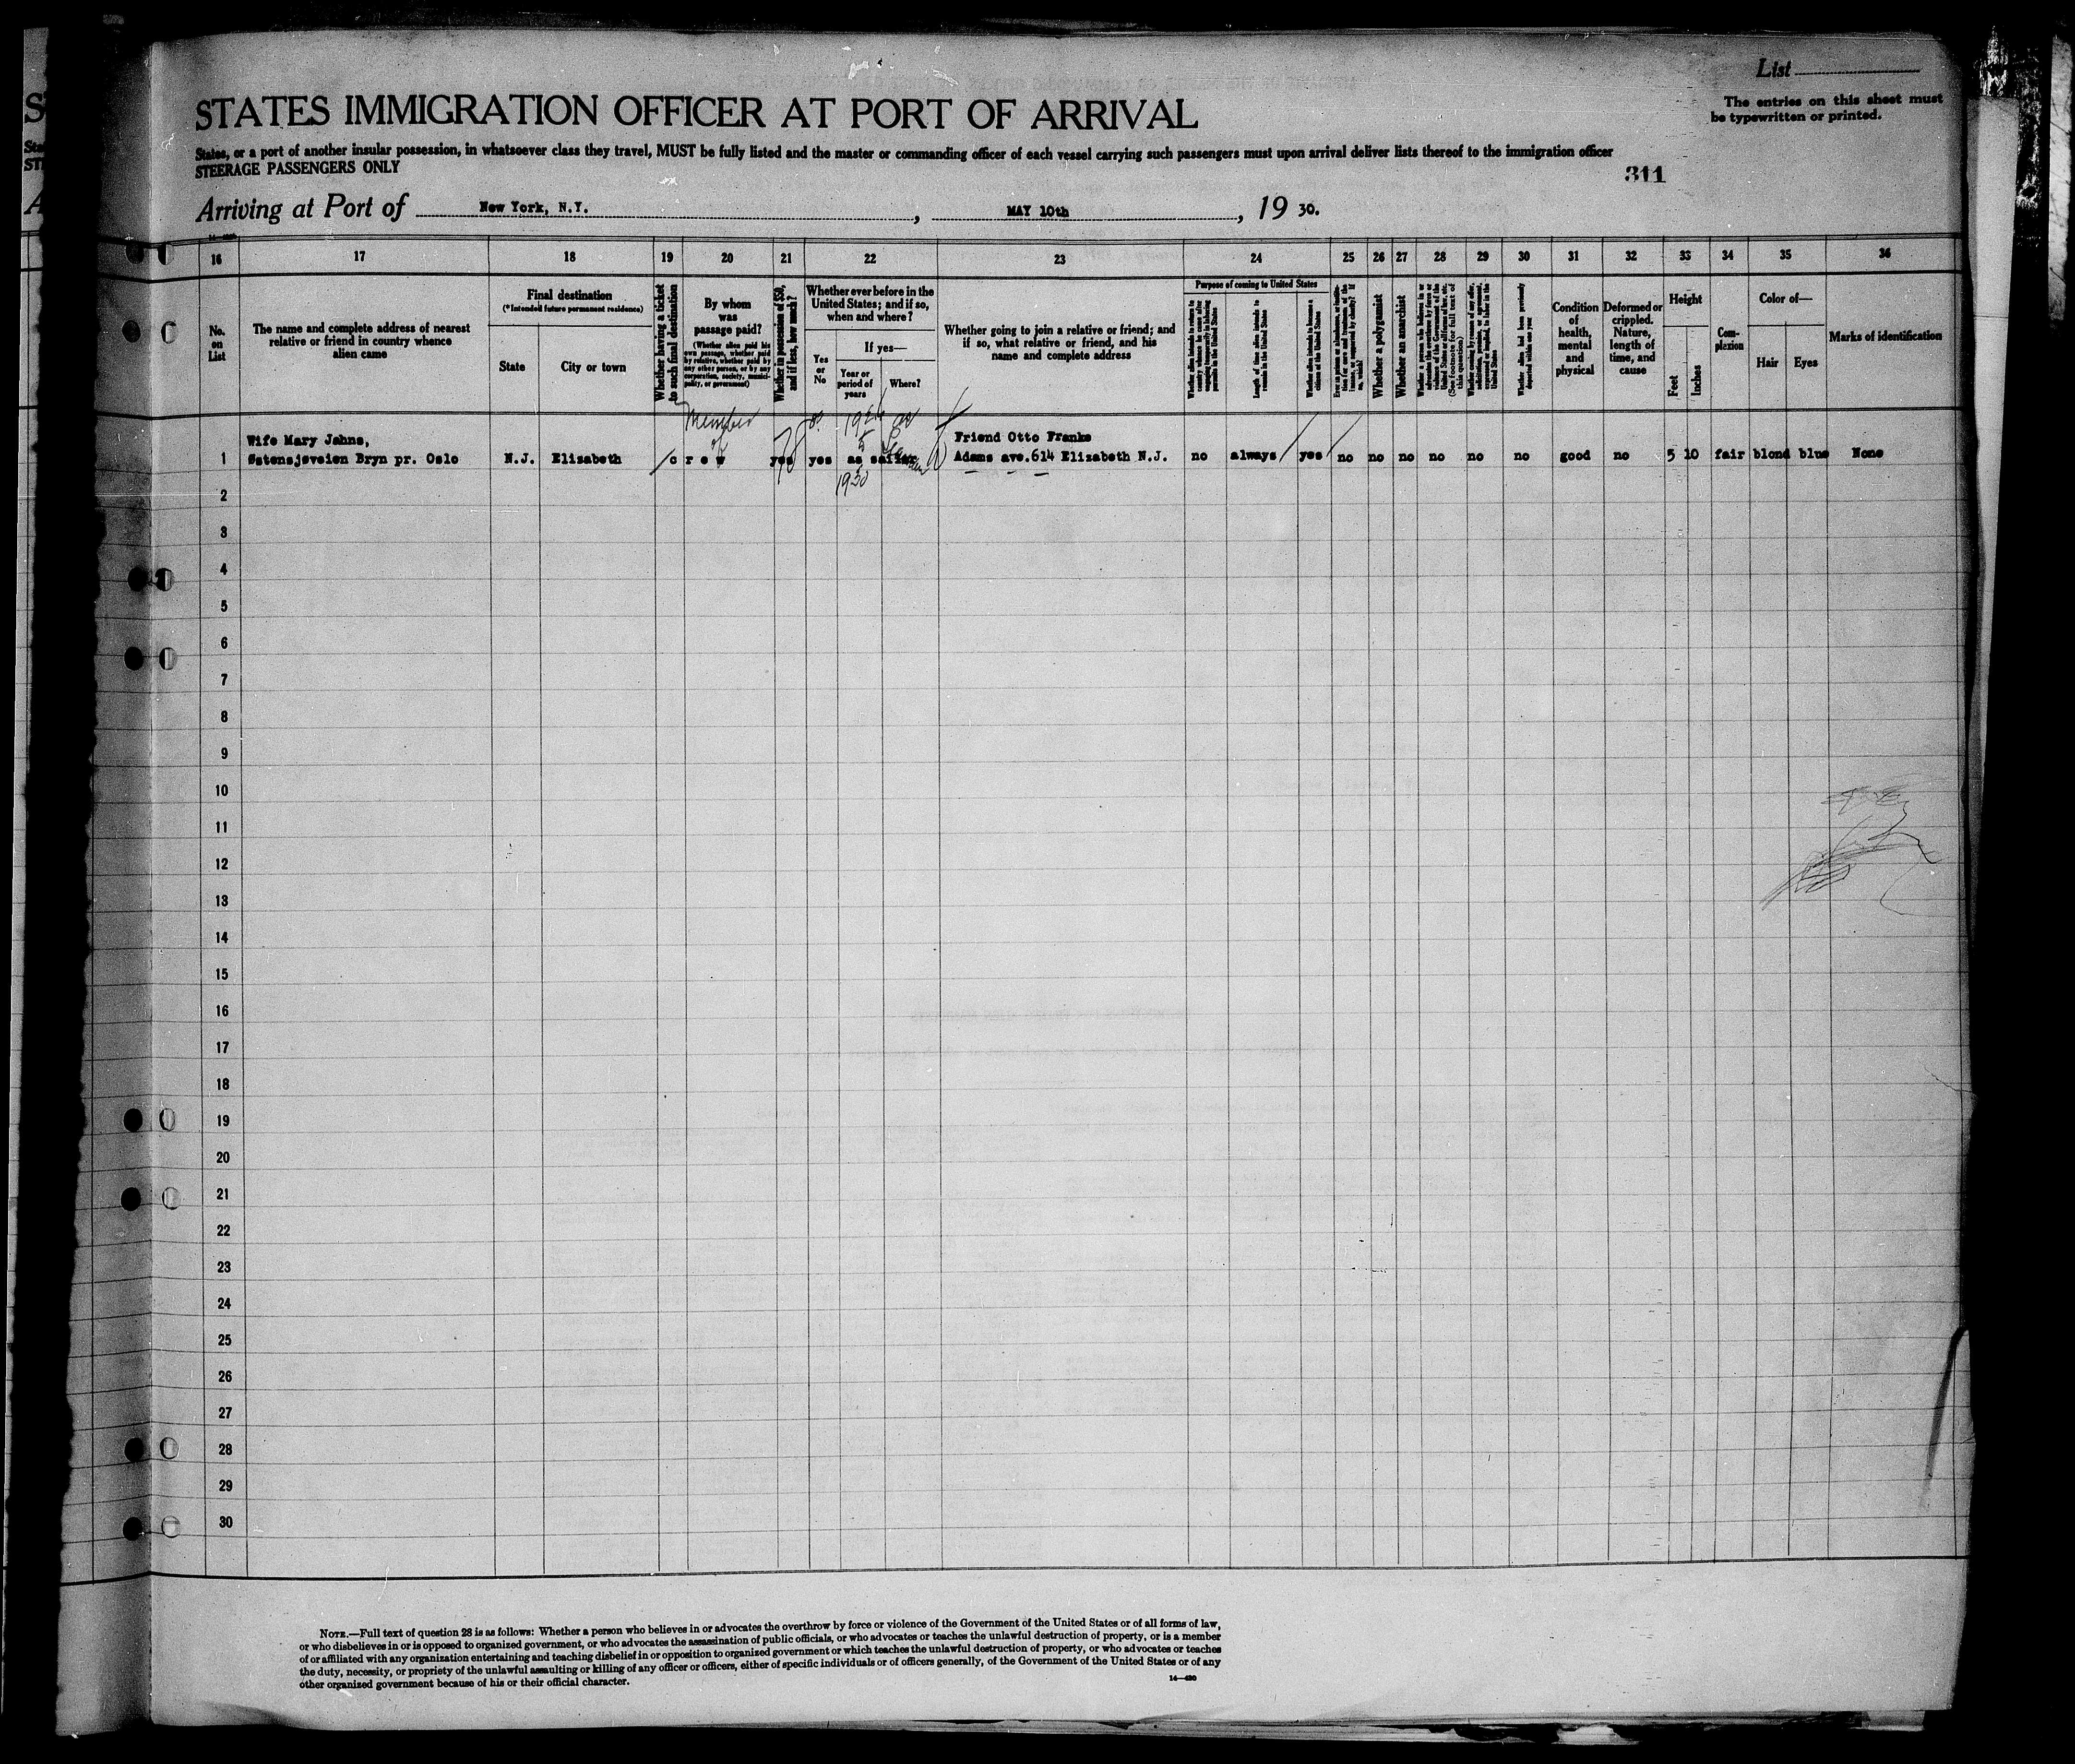 List
The entries on this sheet must
be typewritten or printed.
STATES IMMIGRATION OFFICER AT PORT OF ARRIVAL
States, or a port of another insular possession, in whatsoever class they travel, MUST be fully listed and the master or commanding officer of each vessel carrying such passengers must upon arrival deliver lists thereof to the immigration officer
STEERAGE PASSENGERS ONLY
311
Arriving at Port of New York, N.Y. , MAY 10th , 19 30.
16 17 18 19 20 21 22 23 24 25 26 27 28 29 30 31 32 33 34 35 36
No.
on
List
The name and complete address of nearest
relative or friend in country whence
alien came
Final destination
(*Intended future permanent residence)
State
City or town
Whether having a ticket
to such final destination
By whom
was
passage paid?
(Whether alien paid his
own passage, whether paid
by relative, whether paid by
any other person, or by any
corporation, society, munici-
pality, or government)
Whether in possession of $50,
and if less, how much?
Whether ever before in the
United States; and if so,
when and where?
Yes
or
No
If yes—
Year or
period of
years
Where?
Whether going to join a relative or friend; and
if so, what relative or friend, and his
name and complete address
Purpose of coming to United States
Length of time alien intends to
remain in the United States
Whether alien intends to become a
citizen of the United States
Whether a polygamist
Whether an anarchist
Whether alien had been previously
deported within one year
Condition
of
health,
mental
and
physical
Deformed or
crippled.
Nature,
length of
time, and
cause
Height
Feet
Inches
Com-
plexion
Color of—
Hair
Eyes
Marks of identification
Member
of
Wife Mary Jahns, Friend Otto Franke
1 Østensjøveien Bryn pr. Oslo N.J. Elizabeth crew yes yes as sailor Adams ave.614 Elizabeth N.J. no always yes no no no no no no good no 5 10 fair blond blue None
1930
2
3
4
5
6
7
8
9
10
11
12
13
14
15
16
17
18
19
20
21
22
23
24
25
26
27
28
29
30
NOTE.—Full text of question 28 is as follows: Whether a person who believes in or advocates the overthrow by force or violence of the Government of the United States or of all forms of law,
or who disbelieves in or is opposed to organized government, or who advocates the assassination of public officials, or who advocates or teaches the unlawful destruction of property, or is a member
of or affiliated with any organization entertaining and teaching disbelief in or opposition to organized government or which teaches the unlawful destruction of property, or who advocates or teaches
the duty, necessity, or propriety of the unlawful assaulting or killing of any officer or officers, either of specific individuals or of officers generally, of the Government of the United States or of any
other organized government because of his or their official character.
14—430